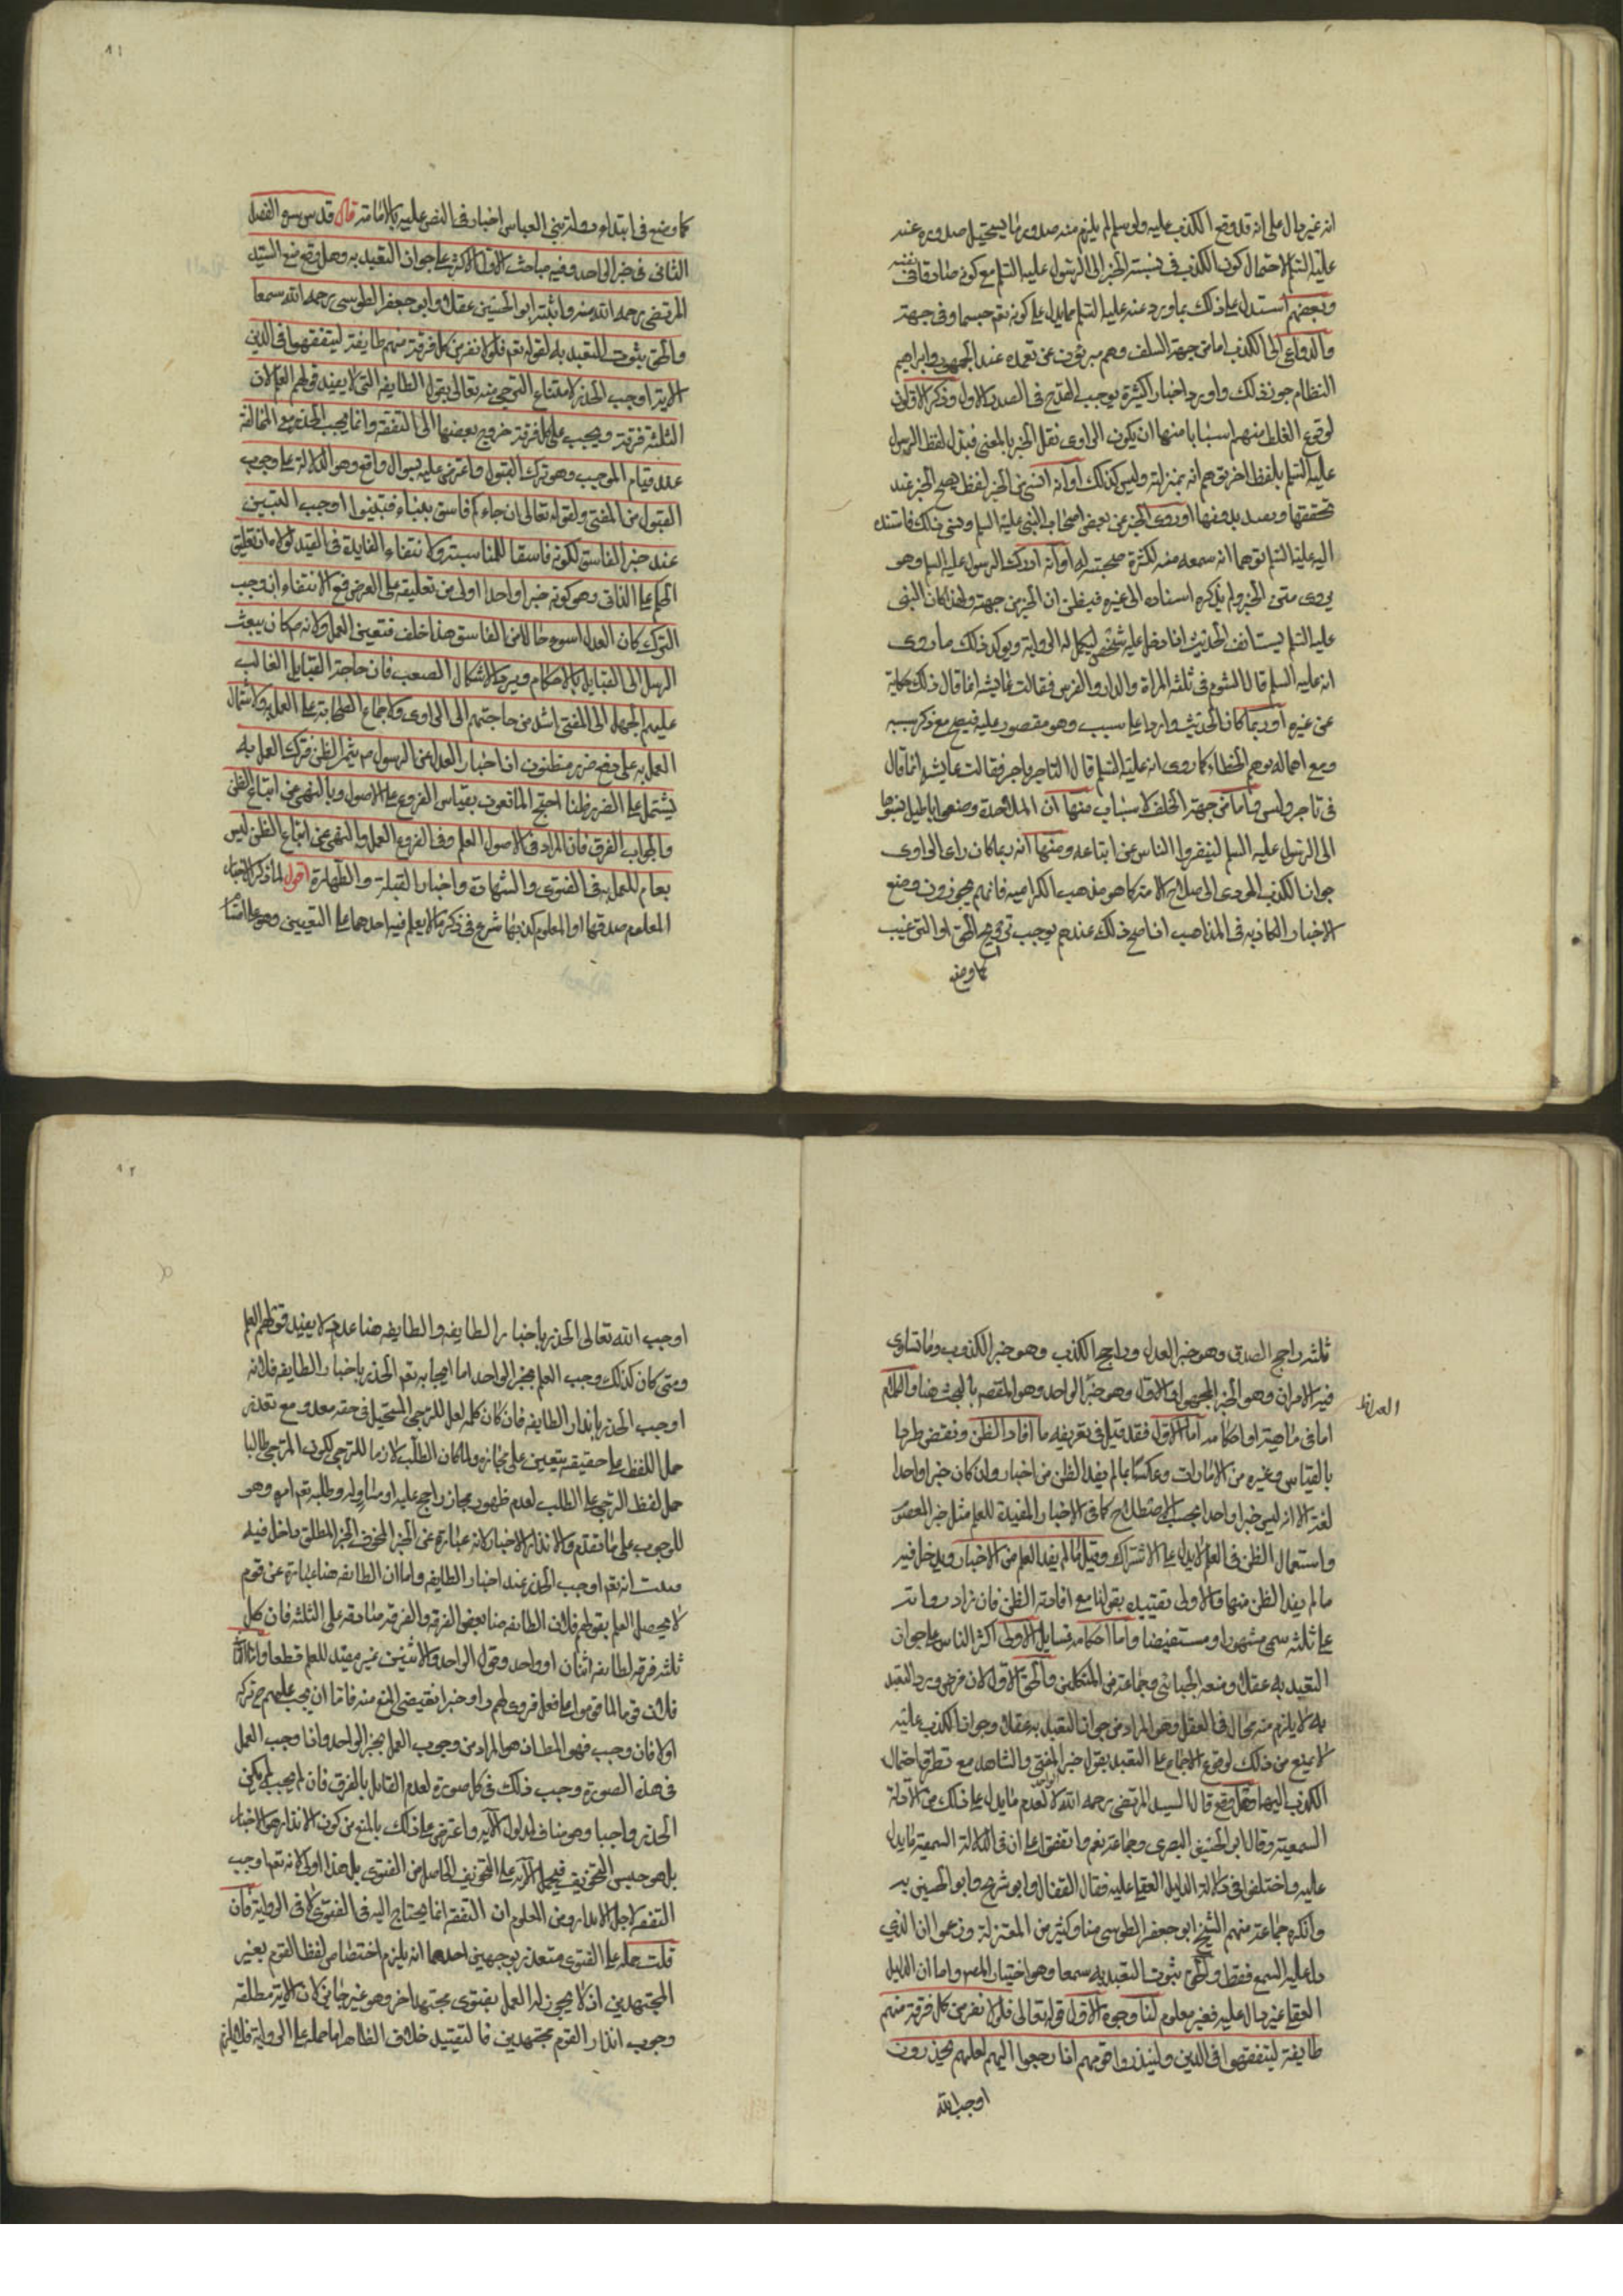 انه غير دال على انه قد وقع الكذب عليه ولو سلم لم يلزم منه صدور ما يستحيل صدوره عنه
عليه السلم لاحتمال كون الكذب في نسبة الخبر الى الرسول عليه السلم مع كونه صادقا في نفسه
وبعضهم استدل على ذلك بما ورد عنه عليه السلم مما يدل على كونه تعم جسما وفي جهة
والدواعى الى الكذب اما من جهة السلف وهم مبرؤون عن تعمده عند الجمهور وابراهيم
النظام جوز ذلك واورد اخبارا كثيرة يوجب القدح في الصدر الاول وذكر الاولون
لوقوع الغلط منهم اسبابا منها ان يكون الراوى نقل الخبر بالمعنى فبدل لفظ الرسول
عليه السلم بلفظ اخر توهم انه بمنزلته وليس كذلك او انه انسى من الخبر لفظا يصح الخبر عند
تحققها ويفسد بدونها او روى الخبر عن بعض اصحاب النبى عليه السلم ونسى ذلك فاسنده
اليه عليه السلم توهما انه سمعه منه لكثرة صحبته له او انه ادرك الرسول عليه السلم وهو
يروى متن الخبر ولم يذكره اسناده الى غيره فيظن ان الخبر من جهته ولهذا كان النبى
عليه السلم يستانف الحديث اذا دخل عليه شخص ليكمل له الرواية ويوكد ذلك ما روى
انه عليه السلم قال الشوم في ثلثه المراة والدار والفرس فقالت عايشه انما قال ذلك حكاية
عن غيره او ربما كان الحديث واردا على سبب وهو مقصور عليه فيصح مع ذكر سببه
ومع اهماله توهم الخطاء كما روى انه عليه السلم قال التاجر فاجر فقالت عايشه انما قال
في تاجر دلس واما من جهة الخلف لاسباب منها ان الملاحدة وضعوا اباطيل نسبوها
الى الرسول عليه السلم لينفروا الناس عن اتباعه ومنها انه ربما كان راى الراوى
جواز الكذب المودى الى صلاح الامة كما هو مذهب الكراميه فانهم يجوزون وضع
الاخبار الكاذبه في المذاهب اذا صح ذلك عندهم يوجب ترويج الحق او الترغيب
كما وضع
كما وضع في ابتداء دولة بني العباس اخبار في النص عليه بالامامة قال قدس سره الفصل
الثانى في خبر الواحد وفيه مباحث الاول الاكثر على جواز التعبد به وهل وقع منع السيد
المرتضى رحمه الله منه واثبته ابو الحسين عقلا وابو جعفر الطوسى رحمه الله سمعا
والحق ثبوت التعبد به لقوله تعم فلولا نفر من كل فرقة منهم طايفة ليتفقهوا في الدين
الاية اوجب الحذر لامتناع الترجى منه تعالى بقول الطايفه التى لا يفيد قولهم العلم لان
الثلثة فرقة ويجب على كل فرقة خروج بعضها الى التفقه وانما يجب الحذر مع المخالفة
عند قيام الموجب وهو ترك القبول واعترض عليه بسوال واقع وهو الدلالة على وجوب
القبول من المفتى ولقوله تعالى ان جاءكم فاسق بنباء فتبينوا اوجب التبين
عند خبر الفاسق لكونه فاسقا للمناسبة ولا نتفاء الفايدة في القيد لولاه اذ تعليق
الحكم على الذاتى وهو كونه خبرا واحدا اولى من تعليقه على العرضى فمع الانتفاء ان وجب
الترك كان العدل اسوء حالا من الفاسق هذا خلف فتعين العمل ولانه ص كان يبعث
الرسل الى القبايل بالاحكام وفيه الاشكال الصعب فان حاجة القبايل الغالب
عليهم الجهل الى المفتى اشد من حاجتهم الى الراوى ولاجماع الصحابة على العمل به ولاشتمال
العمل به على دفع ضرر مظنون اذ اخبار العدل عن الرسول ص يثمر الظن فترك العمل به
يشتمل على الضرر ظنا احتج المانعون بقياس الفروع على الاصول وبالنهى عن اتباع الظن
والجواب الفرق فان المراد في الاصول العلم وفي الفروع العمل والنهى عن اتباع الظن ليس
بعام للعمل به في الفتوى والشهادة واخبار القبلة والطهارة اقول لما ذكر الاخبار
المعلوم صدقها او المعلوم كذبها شرع في ذكر ما لا يعلم فيه احدهما على التعيين وهو على اقسام
ثلثه راجح الصدق وهو خبر العدل وراجح الكذب وهو خبر الكذوب وما تساوى
فيه الامران وهو الخبر المجهول والاول وهو خبر الواحد وهو المقصود بالبحث هنا والكلام
اما في ماهيته او احكامه اما الاول فقد قيل في تعريفه ما افاد الظن ونقض طردا
بالقياس وغيره من الامارات وعكسا بما لم يفد الظن من اخبار وان كان خبرا واحدا
لغة الا انه ليس خبرا واحدا بحسب الاصطلاح كما في الاخبار المفيدة للعلم مثل خبر المعصوم
واستعمال الظن في العلم لا يدل على الاشتراك وقيل ما لم يفد العلم من الاخبار ويدخل فيه
ما لم يفد الظن منها والاولى تقييده بقولنا مع افادة الظن فان زاد رواته
على ثلثه سمى مشهورا ومستفيضا واما احكامه فمسايل الاولى اكثر الناس على جواز
التعبد به عقلا ومنعه الجبائى وجماعة من المتكلمين والحق الاول لان فرض ورود التعبد
به لا يلزم منه محال في العقل وهو المراد من جواز التعبد به عقلا وجواز الكذب عليه
لا يمنع من ذلك لوقوع الاجماع على التعبد بقول خبر المفتى والشاهد مع تطرق احتمال
الكذب اليهما وهل وقع قال السيد المرتضى رحمه الله لا لعدم ما يدل على ذلك من الادلة
السمعية وقال ابو الحسين البصرى وجماعة نعم واتفقوا على ان في الدلالة السمعية ما يدل
عليه واختلفوا في دلالة الدليل العقلى عليه فقال القفال وابو شريح وابو الحسين به
وانكره جماعة منهم الشيخ ابو جعفر الطوسى منا وكثير من المعتزلة وزعموا ان الذي
دل عليه السمع فقط والحق ثبوت التعبد به سمعا وهو اختيار المص واما ان الدليل
العقلى غير دال عليه فغير معلوم لنا وجوه الاول قوله تعالى فلولا نفر من كل فرقة منهم
طايفة ليتفقهوا في الدين ولينذروا قومهم اذا رجعوا اليهم لعلهم يحذرون
اوجب الله
اوجب الله تعالى الحذر باخبار الطايفه والطايفه هنا عدد لا يفيد قولهم العلم
ومتى كان كذلك وجب العلم بخبر الواحد اما ايجابه تعم الحذر باخبار الطايفه فلانه
اوجب الحذر بانذار الطايفه فان كان كلمة لعل للترجى المستحيل في حقه معدوم مع تعذر
حمل اللفظ على حقيقته يتعين على مجازه ولما كان الطلب لازما للترجى لكون المترجى طالبا
حمل لفظ الترجى على الطلب لعدم ظهور مجاز راجح عليه او مساو له وطلبه تعم امره وهو
للوجوب على ما تقدم والانذار الاخبار لانه عبارة عن الخبر المخوف والخبر المطلق داخل فيه
فثبت انه تعم اوجب الحذر عند اخبار الطايفه واما ان الطايفه هنا عبارة عن قوم
لا يحصل العلم بقولهم فلان الطايفه هنا بعض الفرقه والفرقه صادقه على الثلثه فان كل
ثلثه فرقه فالطايفه اثنان او واحد وقول الواحد والاثنين غير مفيد للعلم قطعا واما الثالث
فلان قوما لما قوموا على فعل فروى لهم راو خبرا نقيض المنع منه فاما ان يجب عليهم ح تركه
اولا فان وجب فهو المطلوب اذ هو المراد من وجوب العمل بخبر الواحد واذا وجب العمل
في هذه الصورة وجب ذلك في كل صورة لعدم القايل بالفرق فان لم يجب لم يكن
الحذر واجبا وهو مناف لمدلول الاية واعترض على ذلك بالمنع من كون الانذار هو الاخبار
بل هو جنس التخويف فيحمل الاية على التخويف الحاصل من الفتوى بل هذا اولى لانه تعم اوجب
التفقه لاجل الانذار ومن المعلوم ان التفقه انما يحتاج اليه في الفتوى لا في الرواية فان
قلت حمله على الفتوى متعذر بوجهين احدهما انه يلزم اختصاص لفظ القوم بغير
المجتهدين اذ لا يجوز له العمل بفتوى مجتهد اخر وهو غير جائز لان الاية مطلقه
وجوب انذار القوم مجتهدين فالتقييد خلاف الظاهر اما حمله على الرواية فلا يلزم